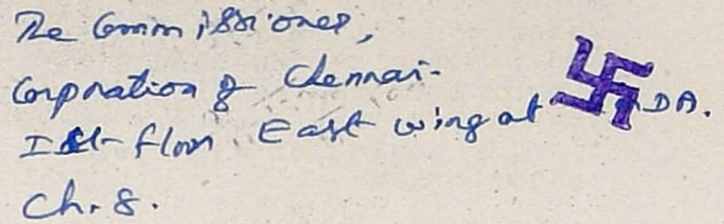 The Commissioner,
Corporation of Chennai.
Ist floor East wing at
Ch. 8.